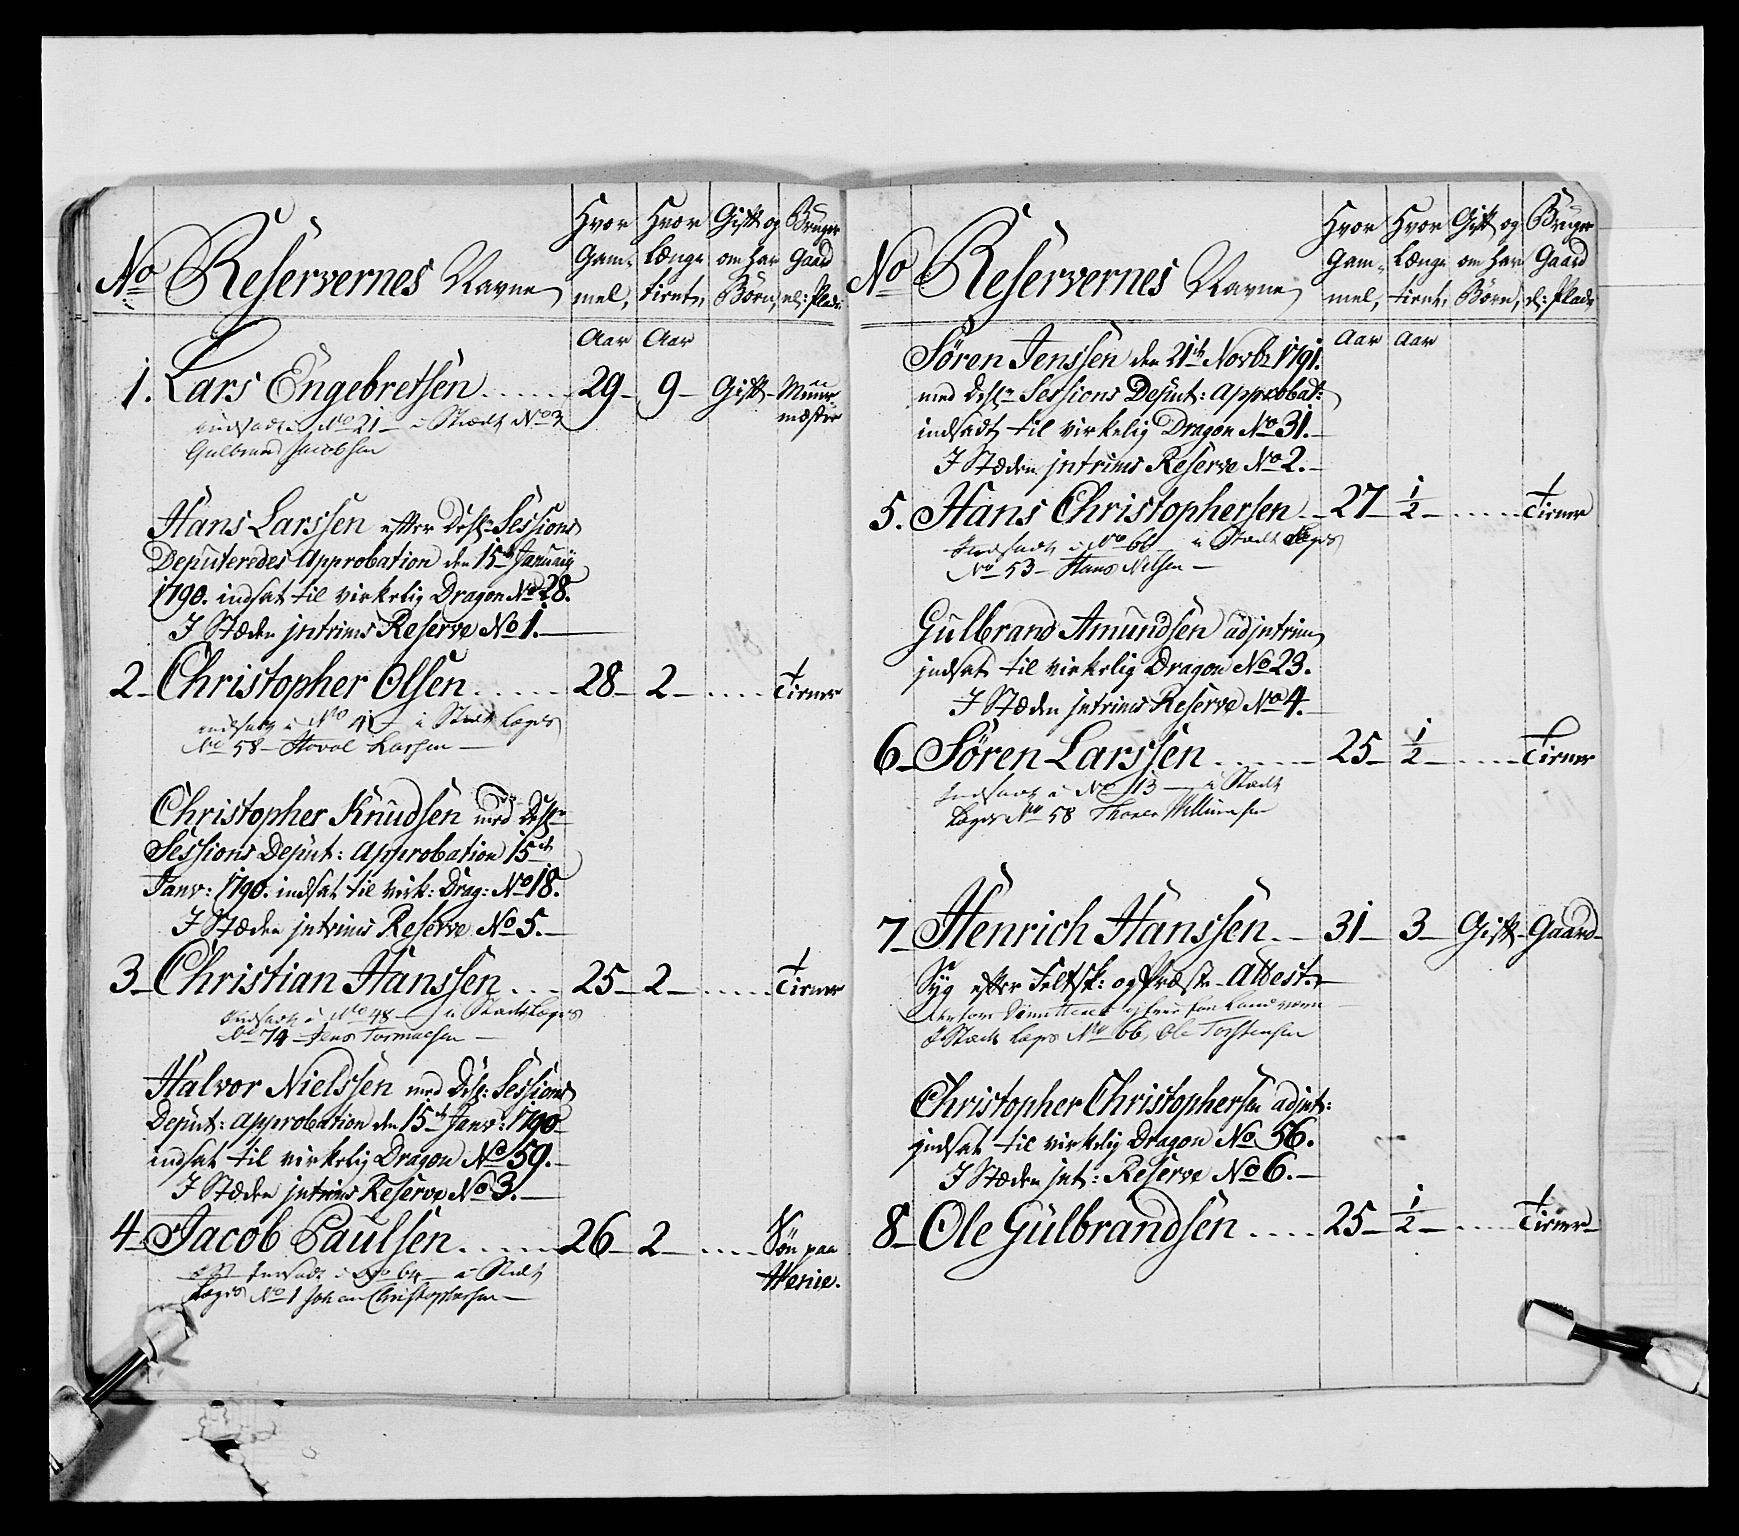 No Reservernes Navne
Hvor Gam- mel,
Hvor Længe tient,
Gift og om har Børn,
Bruger Gaard el: Plads
Aar Aar
1. Lars Engebretsen 29 - 9 - Gift - Muur- mæster
indsadt i No 21 - i Stædt No 3
Gulbrand Jacobsen
Hans Larssen efter Desp: Sessions
Deputeredes Approbation den 15de Januarij
1790. indsat til virkelig Dragon No 28.
I Stæden jntrims Reserve No 1.
2 - Christopher Olsen 28 - 2 - Tiener
indsadt i No 41 - i Stædt Lægds
No 58 - Larsen
Christopher Knudsen med Desp:
Sessions Deput: Approbation 15de
Janv: 1790. indsat til virk: Drag: No 18.
I Stæden jntrims Reserve No 5.
3 - Christian Hanssen 25 - 2 - Tiener
Indsadt i No 48 - i Stædt Lægds
No 74 - Jens
Halvor Nielssen med Desp: Sessions
Deput: Approbation den 15de Janv: 1790
indsat til virkelig Dragon No 59.
I Stæden jntrims Reserve No 3.
4 - Jacob Paulsen 26 - 2 - Søn paa
indsadt i No 64 - i Stædt
Lægds No 1 Johan Christophersen
No Reservernes Navne
Hvor Gam- mel,
Hvor Længe tient,
Gift og om har Børn,
Bruger Gaard el: Plads
Aar Aar
Søren Jenssen den 21de Novbr 1791.
med Desp: Sessions Deput: Approbat:
indsadt til virkelig Dragon No 31.
I Stæden jntrims Reserve No 2.
5. Hans Christophersen 27 - 1/2 - Tiener
Indsadt i No 66 i Stædt Lægds
No 53 - Hans Nilsen
Gulbrand Amundsen adjntrim
jndsat til virkelig Dragon No 23.
I Stæden jntrims Reserve No 4.
6 - Søren Larssen 25 - 1/2 - Tiener
Indsadt i No 113 - i Stædt
Lægds No 58
7 - Henrich Hanssen 31 - 3 - Gift - Gaard
Syg efter Feltsk: og Præste-Attest
I Stædt Lægds No 66, Ole Torstensen
Christopher Christophersen adjnt:
jndsat til virkelig Dragon No 56.
I Stæden jnt: Reserve No 6.
8 - Ole Gulbrandsen 25 - 1/2 - Tiener